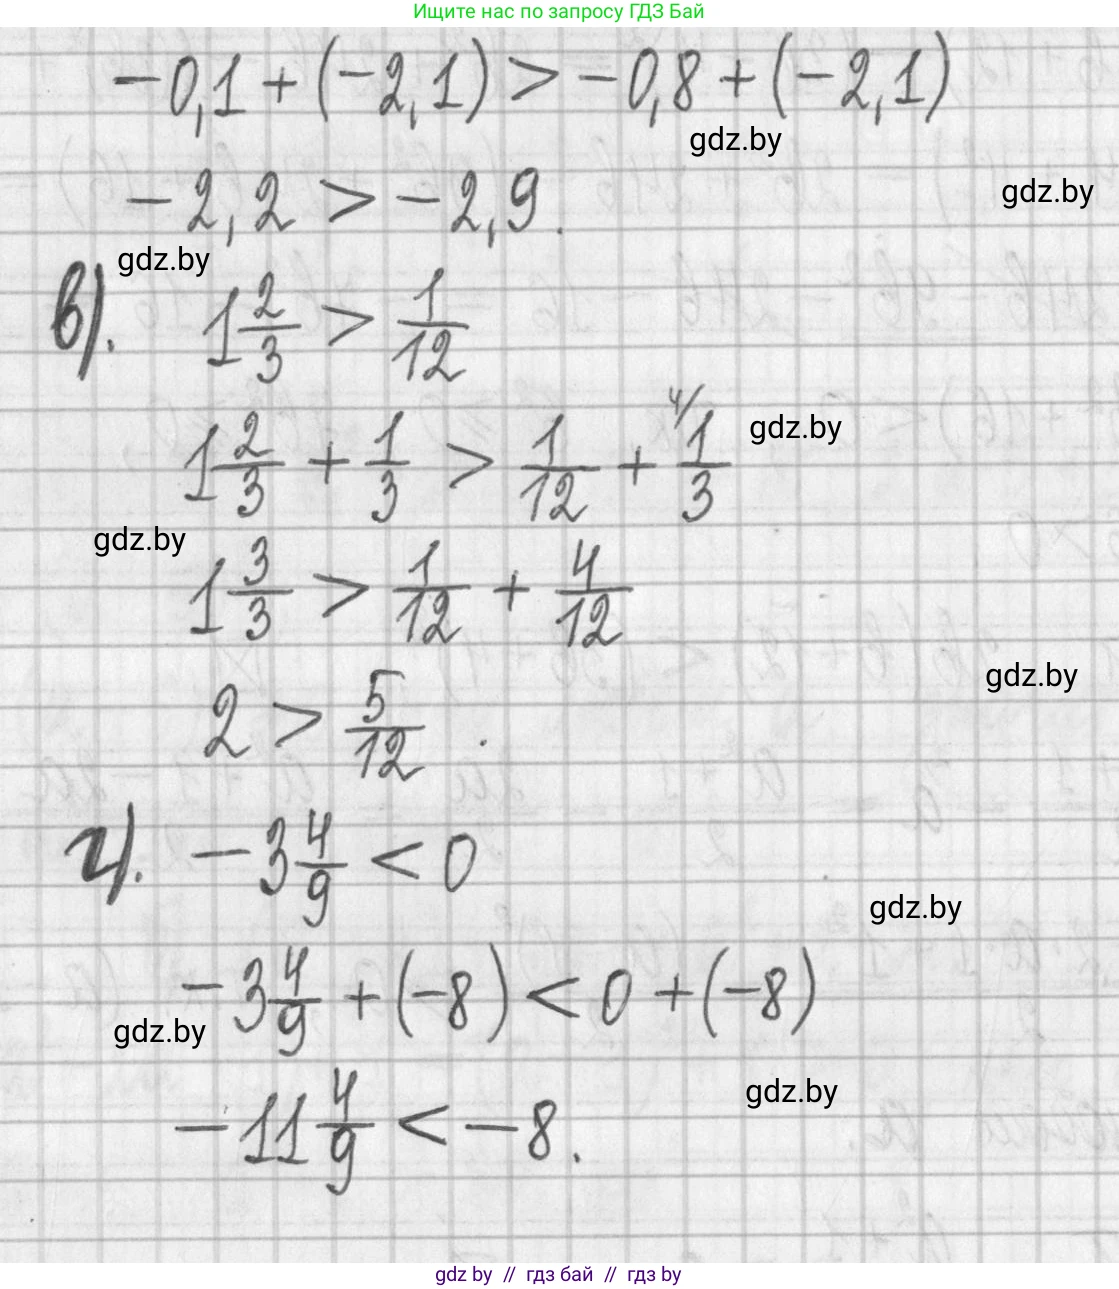 Ищите нас по запросу ГДЗ Бай
−0,1 + (−2,1) > −0,8 + (−2,1)
gdz.by
−2,2 > −2,9.
gdz.by
gdz.by
в). 1 2/3 > 1/12
1 2/3 + 1/3 > 1/12 + 4/ 1/3
gdz.by
gdz.by
1 3/3 > 1/12 + 4/12
gdz.by
2 > 5/12.
г). −3 4/9 < 0
gdz.by
−3 4/9 + (−8) < 0 + (−8)
gdz.by
gdz.by
−11 4/9 < −8.
gdz by // гдз бай // гдз by